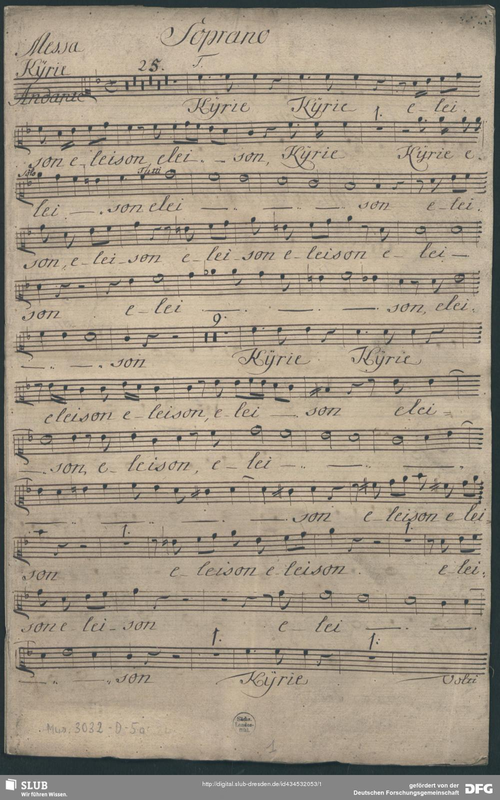 Soprano
I
Messa
Kÿrie
Andante
25.
Kÿrie Kÿrie e - lei -
1.
son e - leison elei - - son, Kÿrie Kÿrie e -
Solo Tutti
lei - . son elei - . - . - . son e - lei -
son, e - lei - son e - lei - son e - leison e - lei -
son e - lei - . - . - . son, elei -
9.
- . - . son Kÿrie Kÿrie
eleison e - leison, e - lei - . son elei -
- . son, e - leison, e - lei - . - . - .
- . - . - . son e - leison e - lei
1. 1.
son e - leison e - leison. e - lei -
son e - lei - son e - lei - . - .
1. 1.
- . - . son Kÿrie Volti
Mus. 3032-D-5a
1
SLUB
Wir führen Wissen.
http://digital.slub-dresden.de/id434532053/1
gefördert von der
Deutschen Forschungsgemeinschaft
DFG